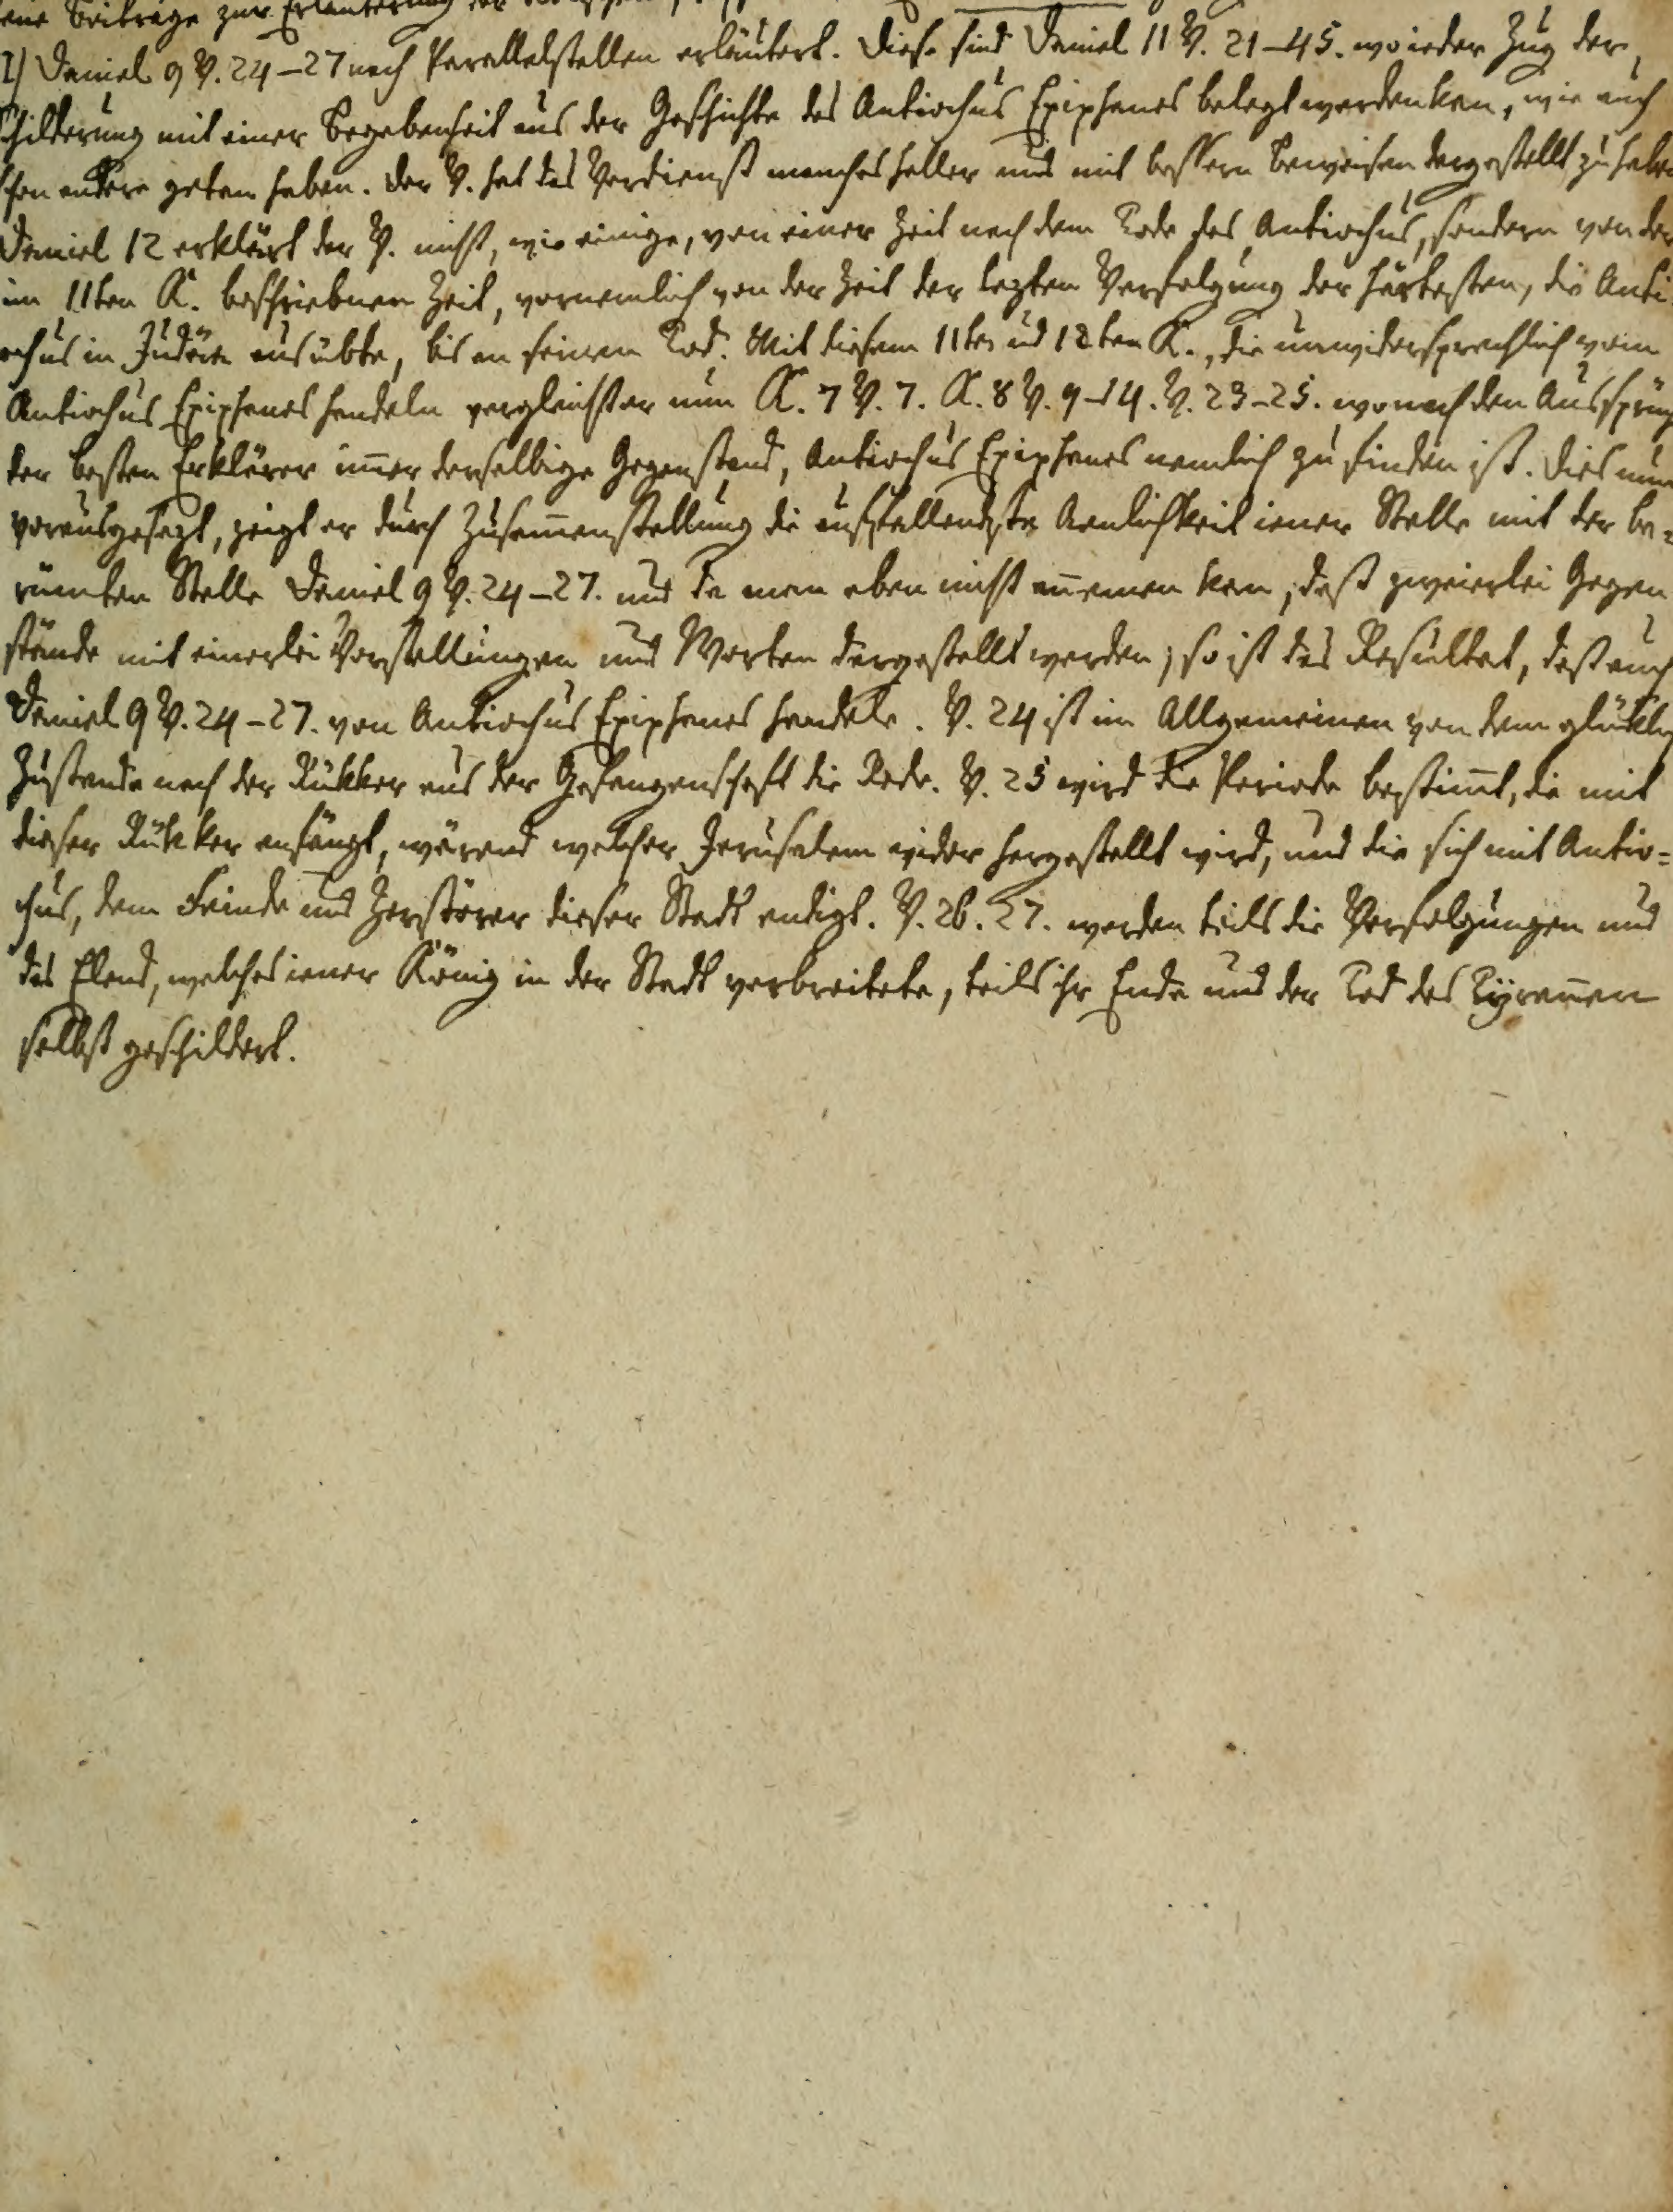 eine Beiträge zur Erläuterung der
I) Daniel 9 V. 24–27 nach Parallelstellen erläutert. Diese sind Daniel 11 V. 21–45. wo ieder Zug der
Schilderung mit einer Begebenheit aus der Geschichte des Antiochus Epiphanes belegt werden kan, wie auch
schon andere getan haben. Der V. hat das Verdienst manches heller und mit bessern Beweisen dargestellt zu haben
Daniel 12 erklärt der V. nicht, wie einige, von einer Zeit nach dem Tode des Antiochus, sondern von der
im 11ten K. beschriebnen Zeit, vornemlich von der Zeit der lezten Verfolgung der härtesten, die Anti
ochus in Judäa ausübte, bis an seinen Tod. Mit diesem 11ten und 12ten K., die unwidersprechlich vom
Antiochus Epiphanes handeln vergleicht er nun K. 7 V. 7. K. 8 V. 9–14. V. 23–25. wo nach den Aussprüch
der besten Erklärer im̅er derselbige Gegenstand, Antiochus Epiphanes nemlich zu finden ist. Dies nun
vorausgesezt, zeigt er durch Zusam̅enstellung die auffallendste Aenlichkeit iener Stelle mit der be=
rümten Stelle Daniel 9 V. 24–27. und da man eben nicht an̅emen kan, daß zweierlei Gegen
stände mit einerlei Vorstellungen und Worten dargestellt werden; so ist das Resultat, daß auch
Daniel 9 V. 24–27. von Antiochus Epiphanes handele. V. 24 ist im Allgemeinen von dem glükl
Zustande nach der Rükker aus der Gefangenschaft die Rede. V. 25 wird die Periode bestim̅t, die mit
dieser Rükker anfängt, wärend welcher Jerusalem wider hergestellt wird, und die sich mit Antio=
chus, dem Feinde und Zerstörer dieser Stadt endigt. V. 26. 27. werden teils die Verfolgungen und
das Elend, welches iener König in der Stadt verbreitete, teils ihr Ende und der Tod des Tyran̅en
selbst geschildert.